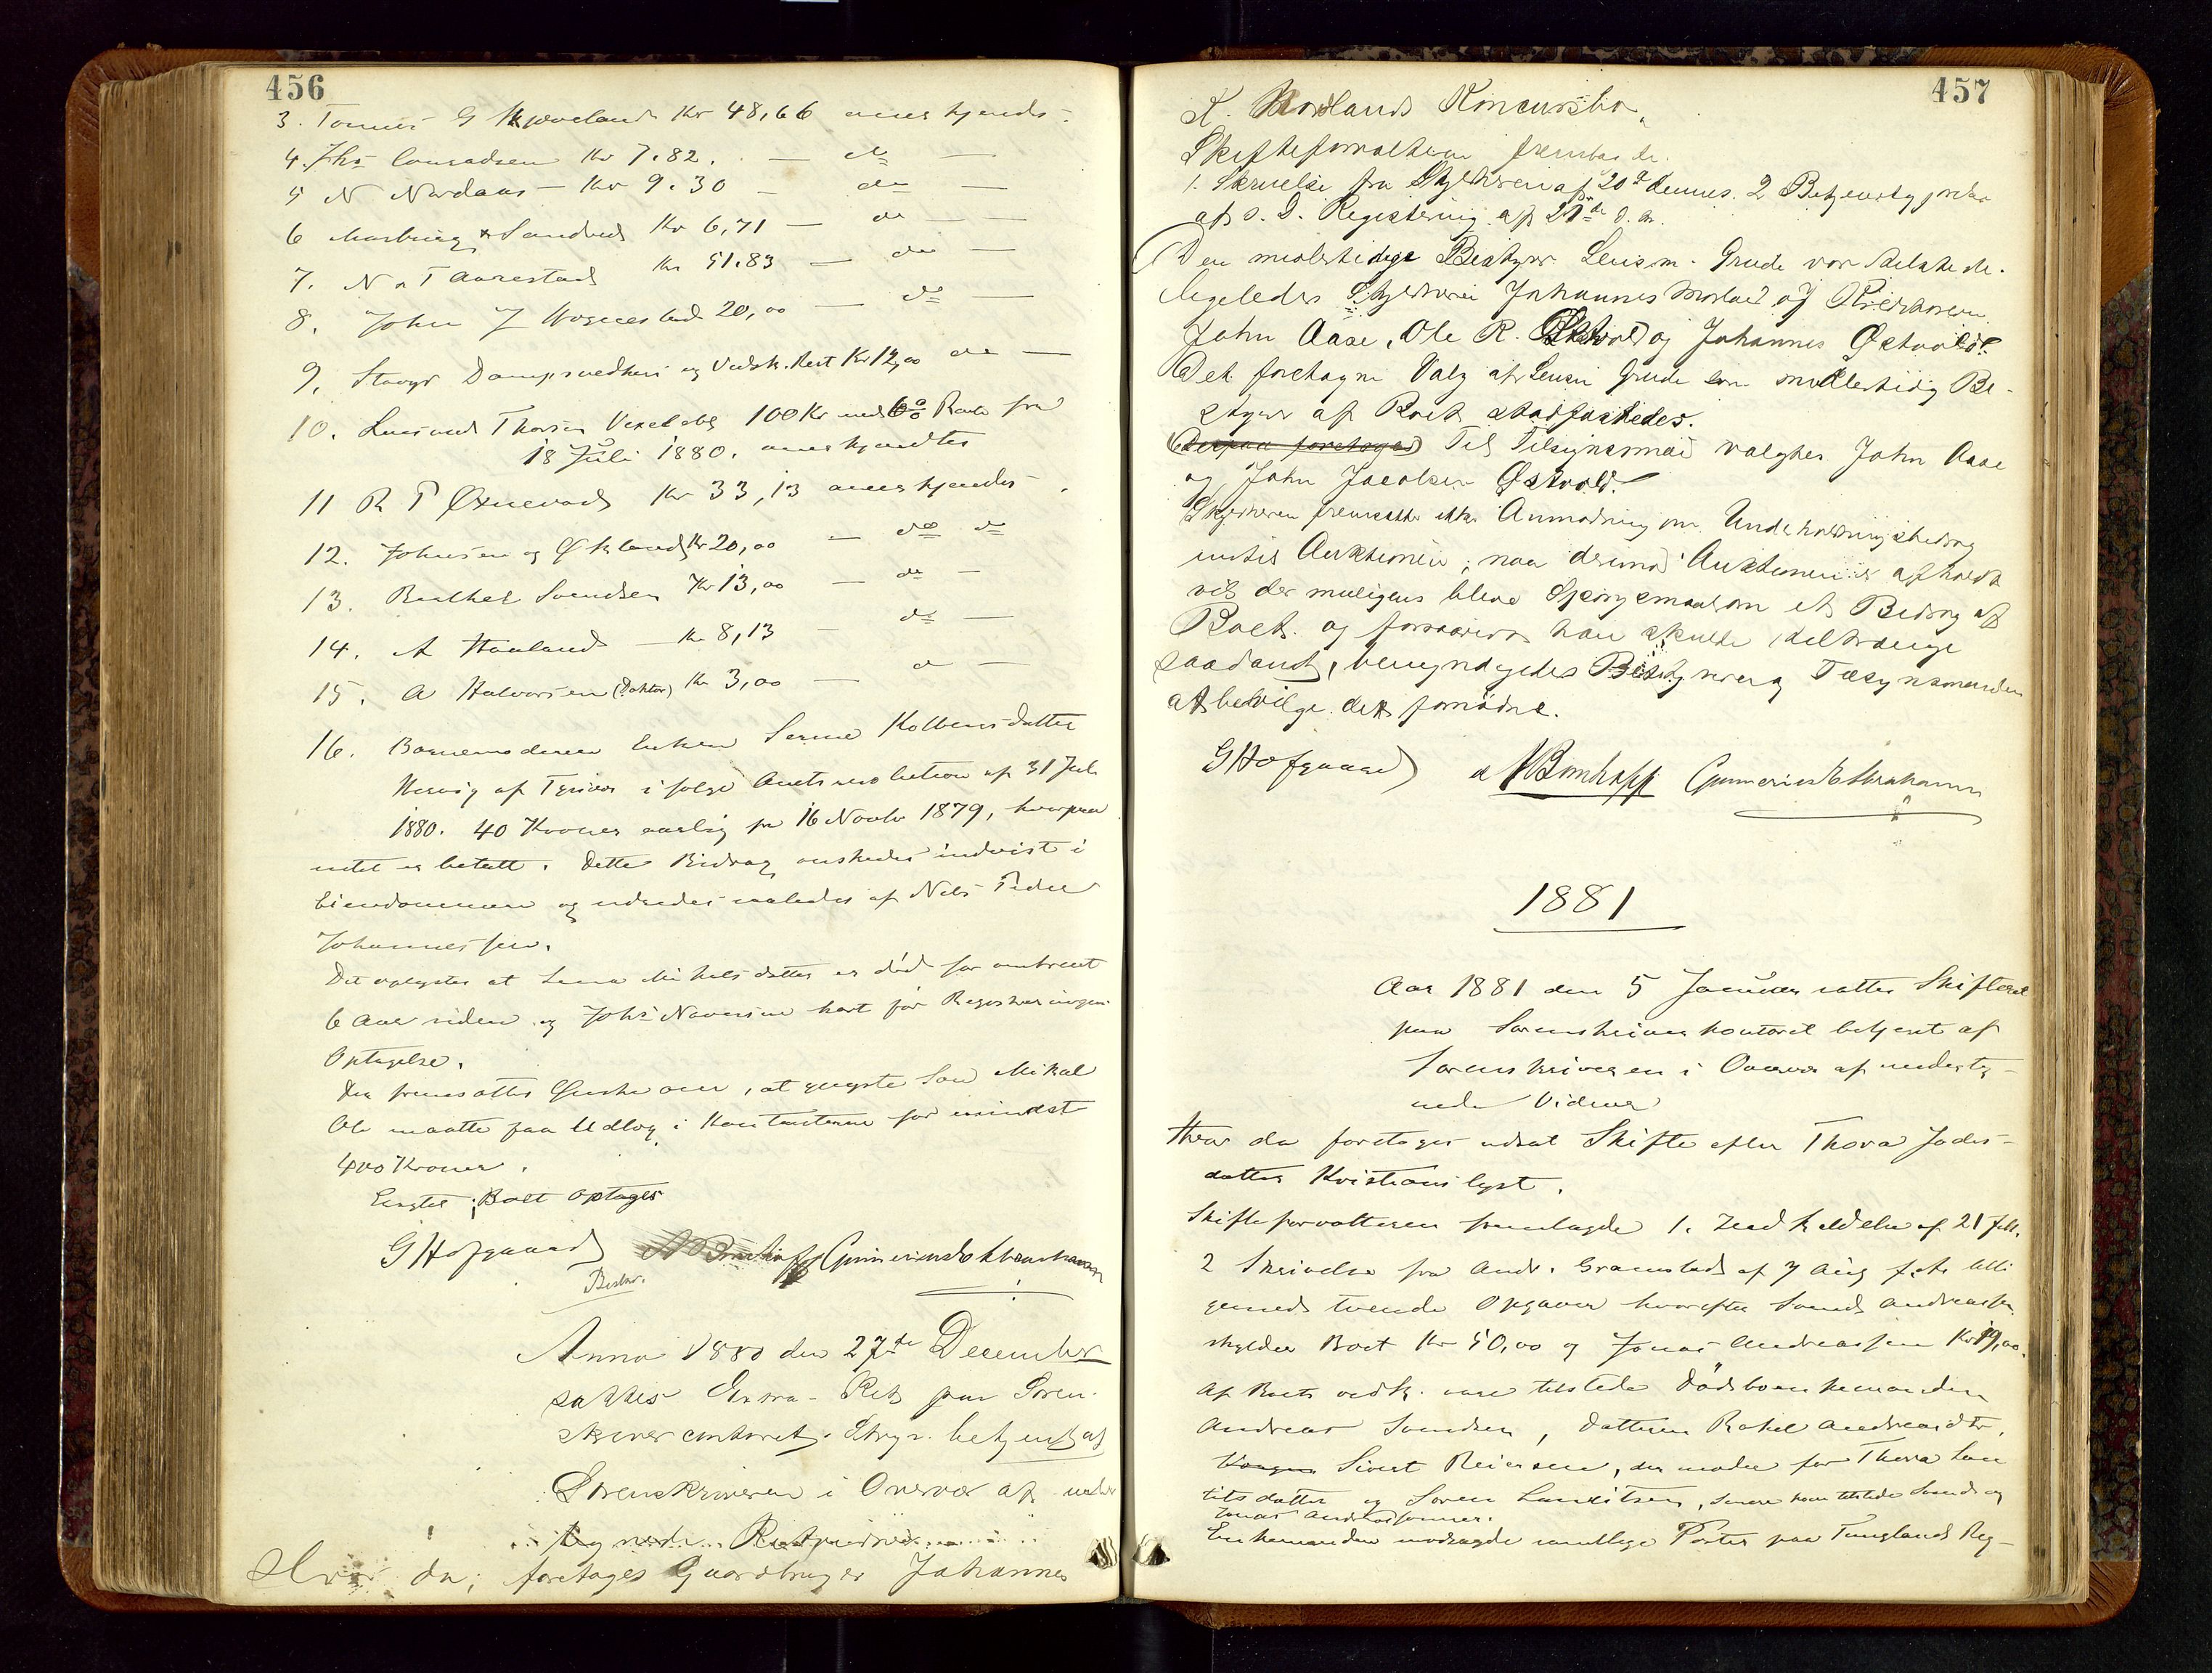 456
3. Tønnes G Skjæveland Kr 48,66 anerkjendes.
4. Jhs Conradsen Kr 7.82. — do —
5 N Nordaas — Kr 9.30 — do —
6 & Sandved Kr 6,71 — do —
7. N a T Aarestad Kr 51.83 — do —
8. John J Wognestad 20,00 — do —
9. Stavgr Dampvæveri og Vedsk. Rest Kr 12,00 do —
10. Thorsen Vexelobl 100 Kr med 6% Rente fra
18 Juli 1880. anerkjendtes
11 R T Oxnevad Kr 33,13 anerkjendes.
12. Johnsen og Øksland Kr 20,00 — do do
13. Berthel Svendsen Kr 13,00 — do —
14. A Haaland — Kr 8,13 — do —
15. A Halvorsen (Doktor) Kr 3,00 — do —
16. Barnemoderen Enken Serine Kolbensdatter
Hervig af Tysvær i følge Amtsresolution af 31 Juli
1880. 40 Kroner aarlig fra 16 Novbr 1879, hvorpaa
intet er betalt. Dette Bidrag ønskedes indvist i
Eiendommen og udredes saaledes af Nels Peder
Johannessen.
Det oplystes at Lena Mikelsdatter er død for omtrent
6 Aar siden og Johs Naversen kort før Registreringens
Optagelse.
Der fremsattes Ønske om, at yngste Søn Mikal
Ole maatte faa Udlæg i Kontanterne for mindst
400 Kroner.
Sluttet; Boet optages
G Hofgaard A Bomhoff Gunnerius E Abrahamsen
Beskr.
Anno 1880 den 27de December
sattes Extra-Ret paa Soren-
skrivercontoret. Stvgr. betjent af
Sorenskriveren i Overvær af under-
tegnede Retsvidner
Hvor da; foretoges Gaardbruger Johannes
457
K. Morlands Konkursbo.
Skifteforvalteren frembar de.
1. Skrivelse fra Skyldneren af 20de dennes. 2 Bekjendtgjørelse
af s. D. Registrering af 21de d. M.
Den midlertidige Bestyrer Lensm. Grude var tilstede.
Ligeledes Skyldneren Johannes Morland og Kreditorerne
John Aase, Ole R. Østvold og Johannes Østvold.
Det foretagne Valg af Lensm Grude som midlertidig Be-
styrer af Boet stadfæstedes.
Derpaa foretoges Til Tilsynsmænd valgtes John Aase
og John Jacobsen Østvold.
Skyldneren fremsatte ikke Anmodning om Underholdningsbidrag
indtil Auktionen; naar derimod Auktionen er afholdt
vil der muligens blive Spørgsmaal om et Bidrag af
Boet. og forsaavidt han skulde tiltrænge
saadant, bemyndigedes Bestyreren og Tilsynsmænden
at bevilge det fornødne.
G Hofgaard A Bomhoff Gunnerius E Abrahamsen
1881
Aar 1881 den 5 Januar sattes Skifteret
paa Sorenskriverkontoret betjent af
Sorenskriveren i Overvær af underteg-
nede Vidner
Hvor da foretoges udsat Skifte efter Thora Jades-
datter Kristianslyst.
Skifteforvalteren fremlagde 1. Indkaldelse af 21 Juli,
2 Skrivelse fra Andr. Gramstad af 7 Aug f. A. tilli
gemed tvende Opgaver hvorefter Svend Andreassen
skylder Boet Kr 50,00 og Jonas Andreassen Kr 19,00.
Af Boets vedk. vare tilstede Dødsboenkemanden
Andreas Svendsen, Datteren Rakel Andreasdtr,
Sivert Reiersen, der møder for Thora Lau
ritsdatter og Søren Lauritsen, senere kom tilstede Svend og
Jonas Andreassønner.
Enkemanden modsagde samtlige Poster paa Tunglands Reg-